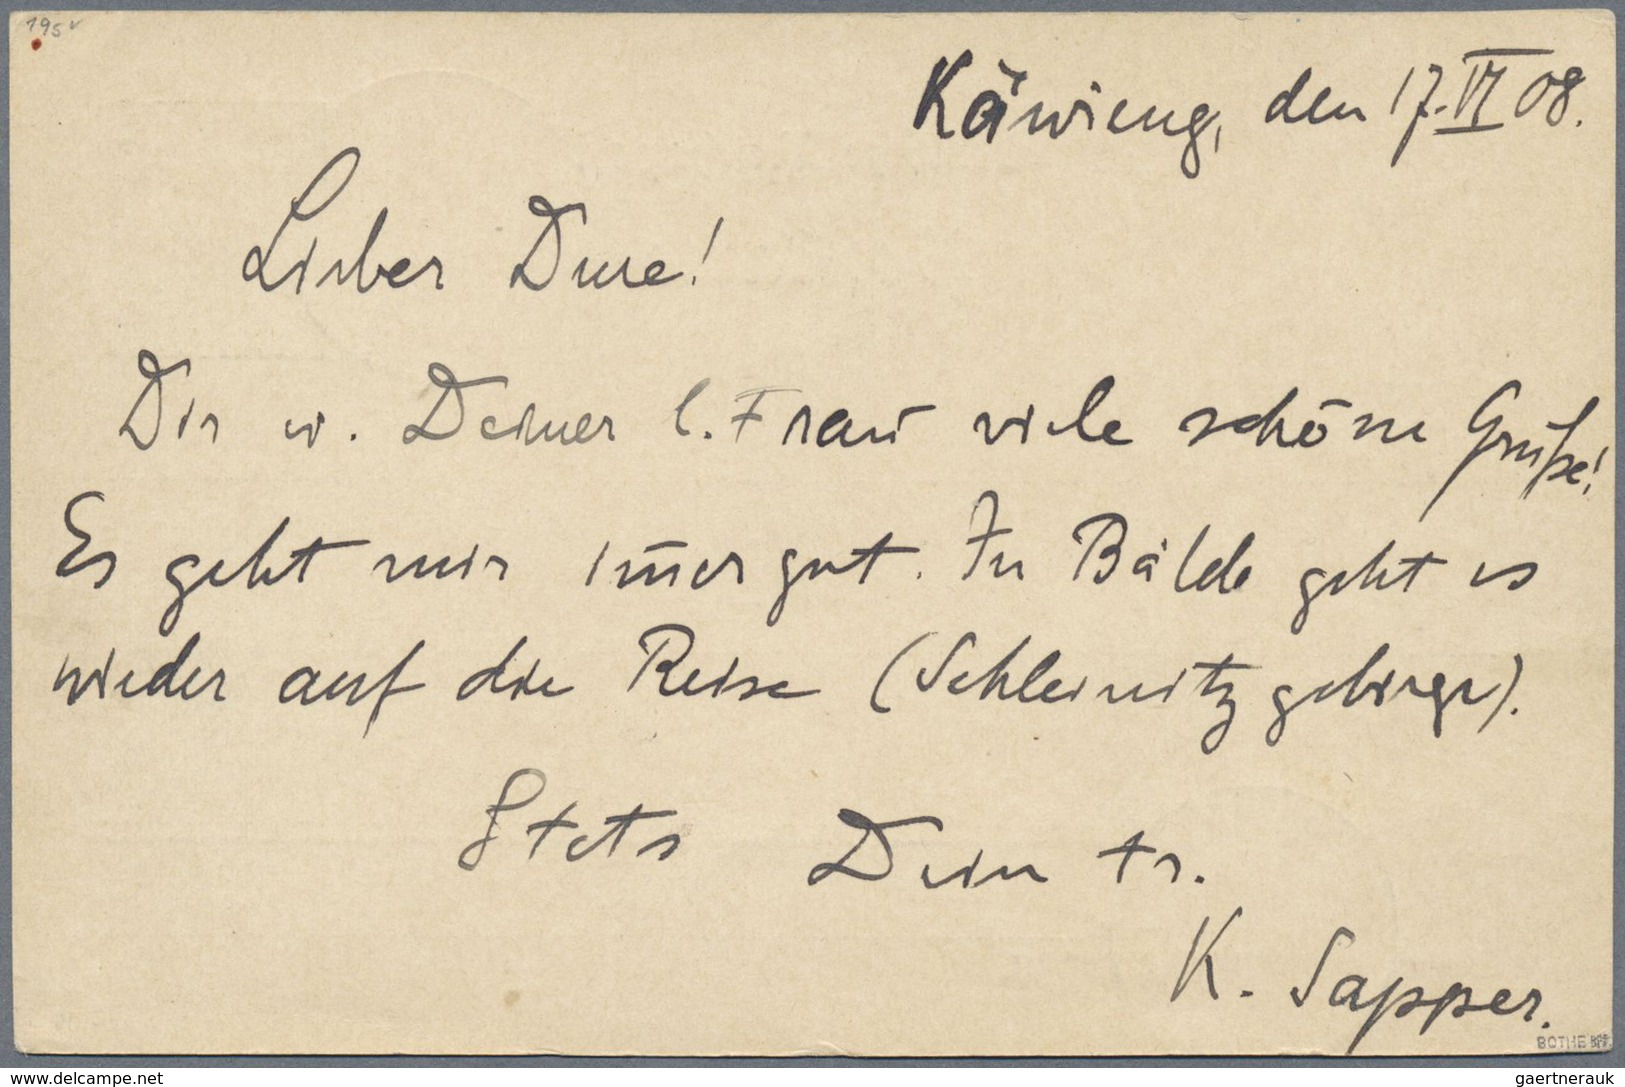 195
Käwieng, den 17. VI 08.
Lieber Duse!
Dir u. Deiner l. Frau viele schöne Grüße!
Es geht mir im̄er gut. In Bälde geht es
wieder auf die Reise (Schleinitzgebirge).
Stets Dein tr.
K. Sapper.
BOTHE BPP
www.delcampe.net
gaertnerauk